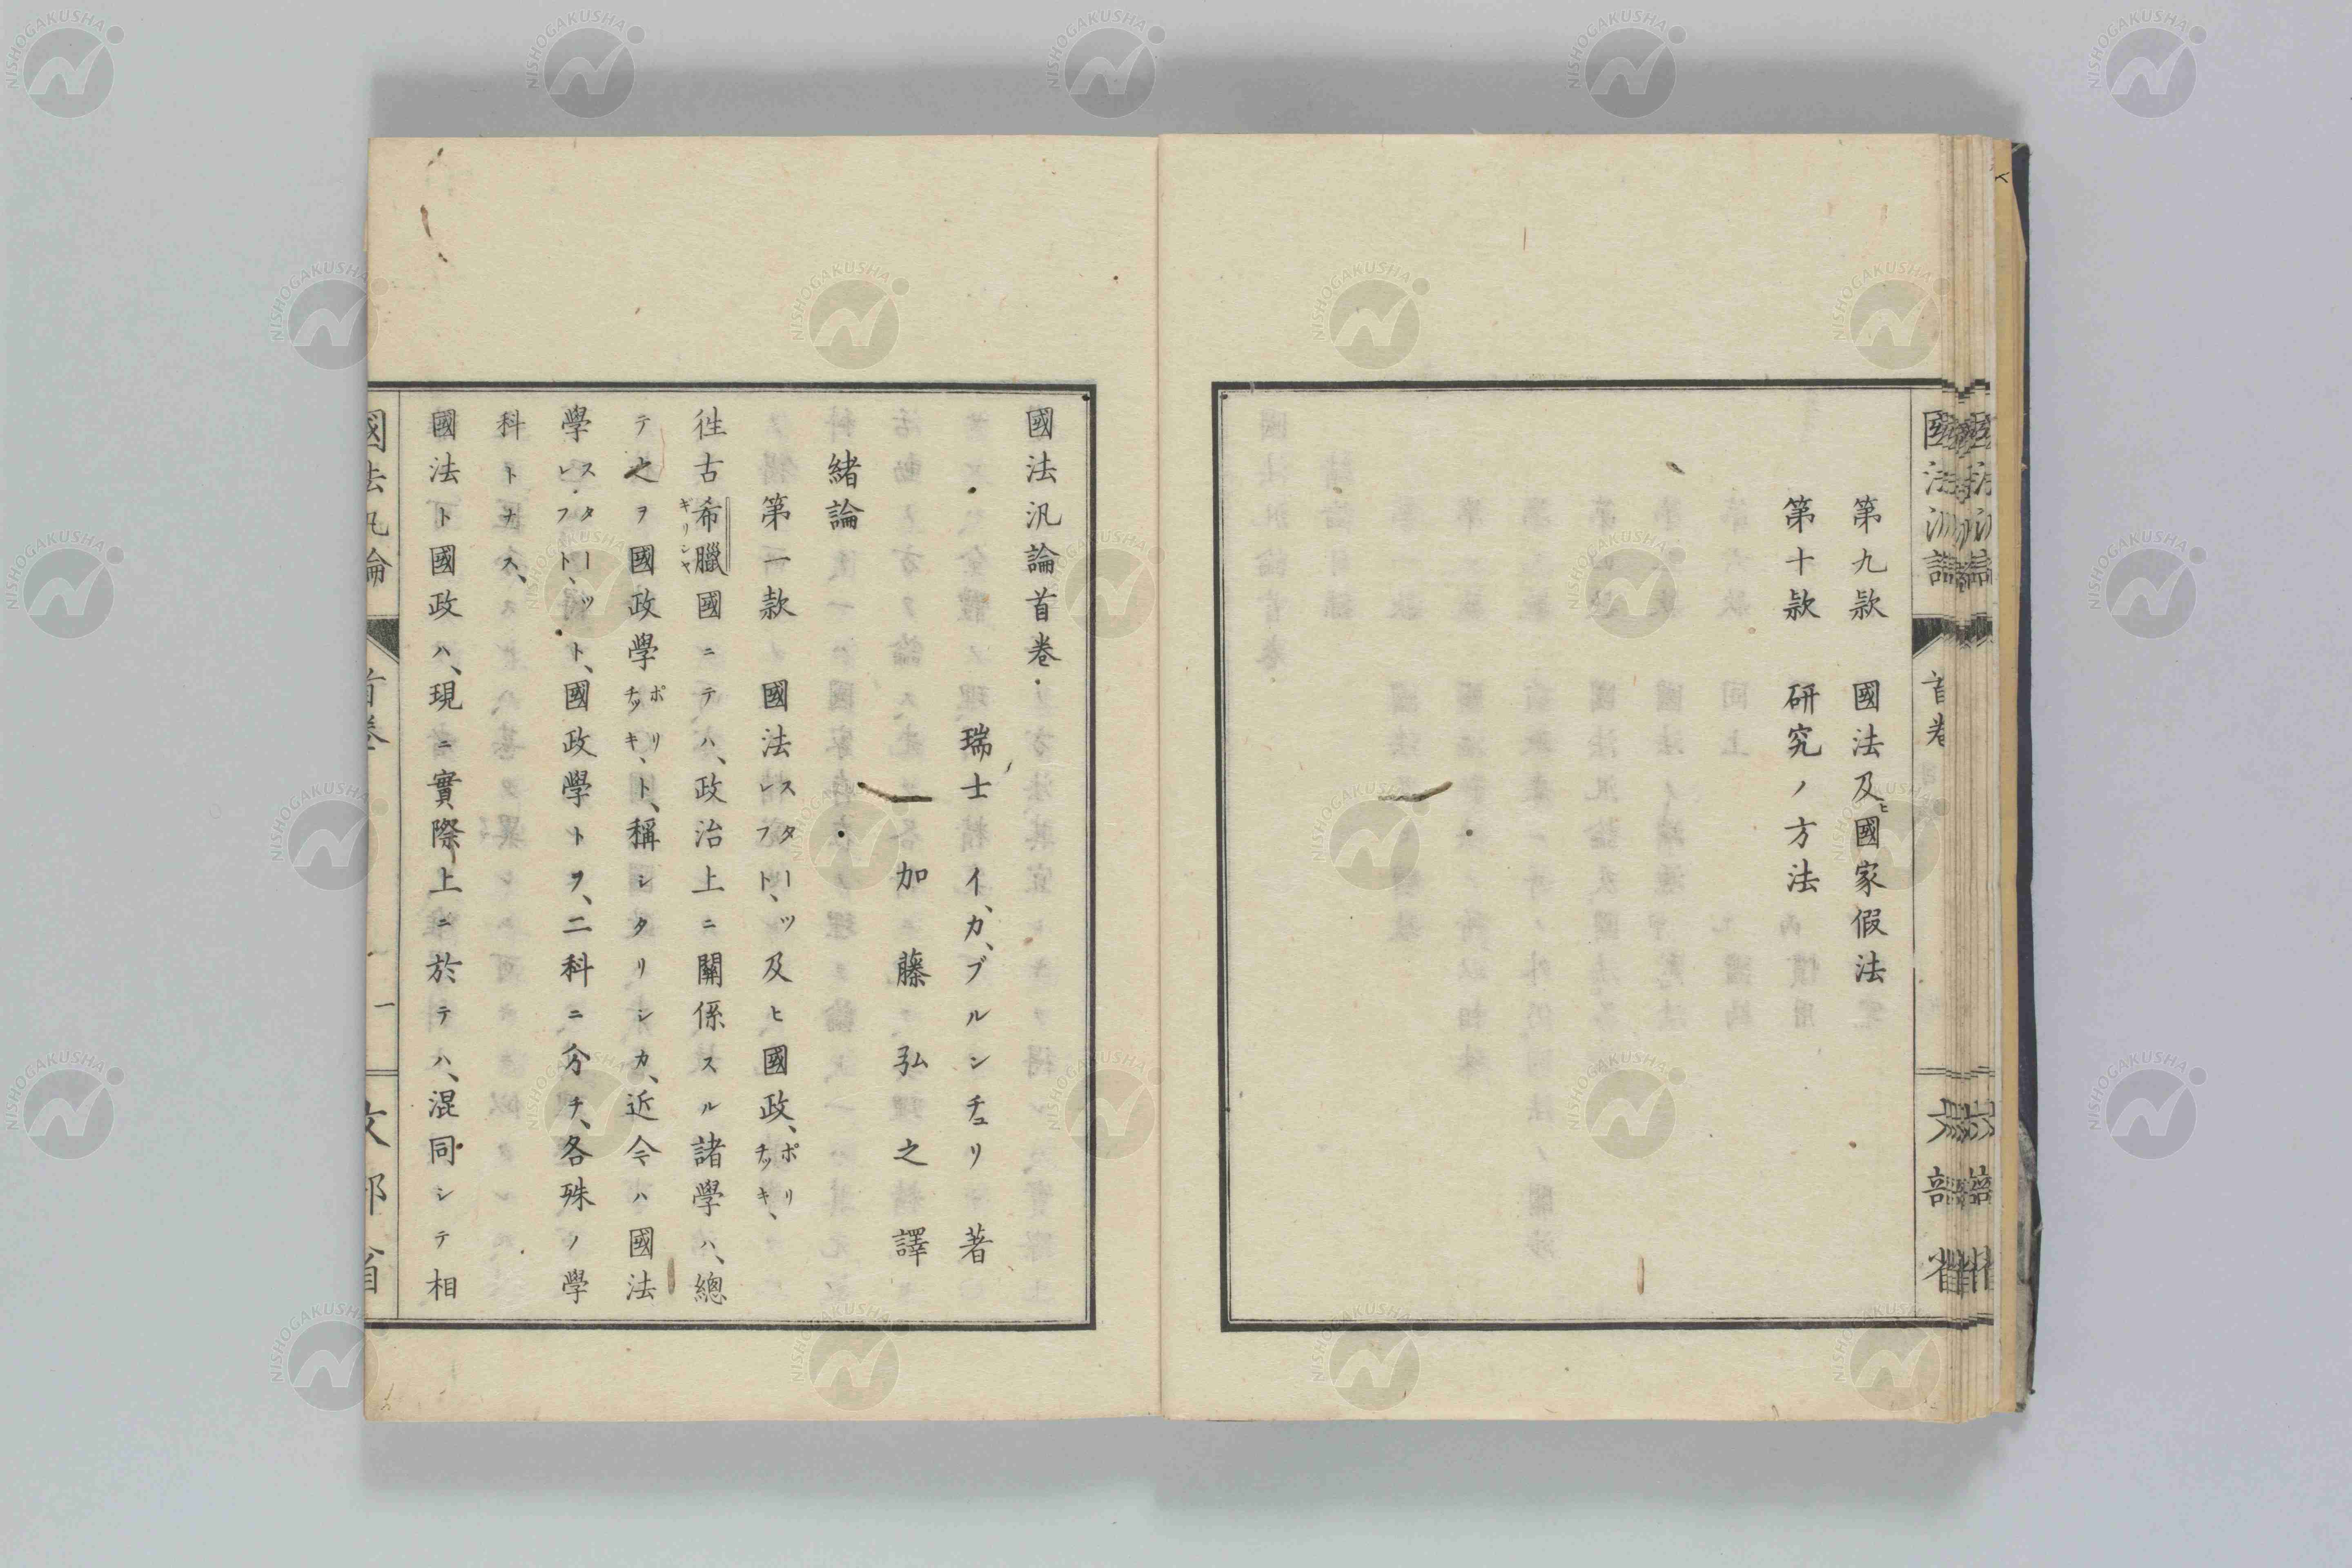 第九欵　國法及ヒ國家假法
第十欵　研究ノ方法
國法汎論
首卷
文部省
國法汎論首卷
瑞士　イ、カ、ブルンチュリ　著
加藤弘之　譯
緒論
第一款　國法スターツレフト、及ヒ國政、ポリチッキ、
徃古希臘ギリシヤ國ニテハ、政治上ニ關係スル諸學ハ、總
テ之ヲ國政學ポリチッキ、ト、稱シタリシカ、近今ハ國法
學スターツレフト、ト、國政學トヲ、二科ニ分チ、各殊ノ學
科トナス、
國法ト國政ハ、現ニ實際上ニ於テハ、混同シテ相
國法汎論
首卷
一
文部省
NISHOGAKUSHA